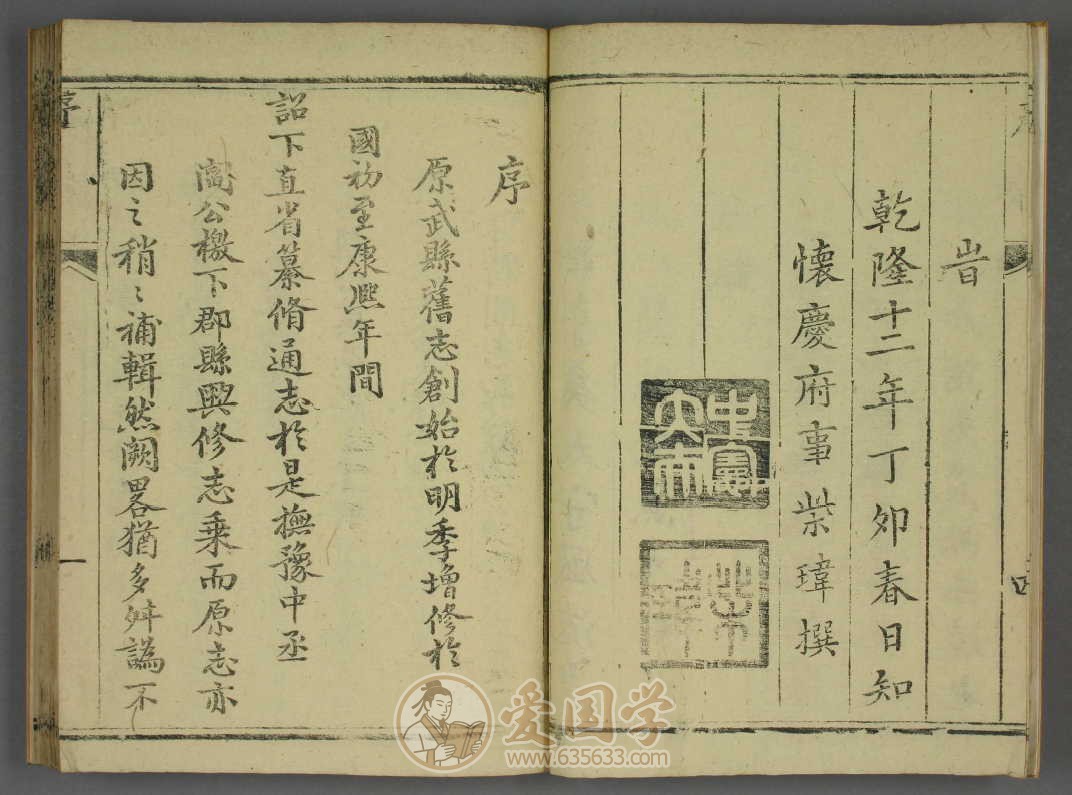 峕
乾隆十二年丁卯春日知
懷慶府事柴瑋撰
中憲大夫
序
原武縣舊志創始於明季增修於
國初至康熙年間
詔下直省纂脩通志於是撫豫中丞
公檄下郡縣興修志乘而原志亦
因之稍〻補輯然闕畧猶多舛譌不
序
一
爱国学
www.635633.com